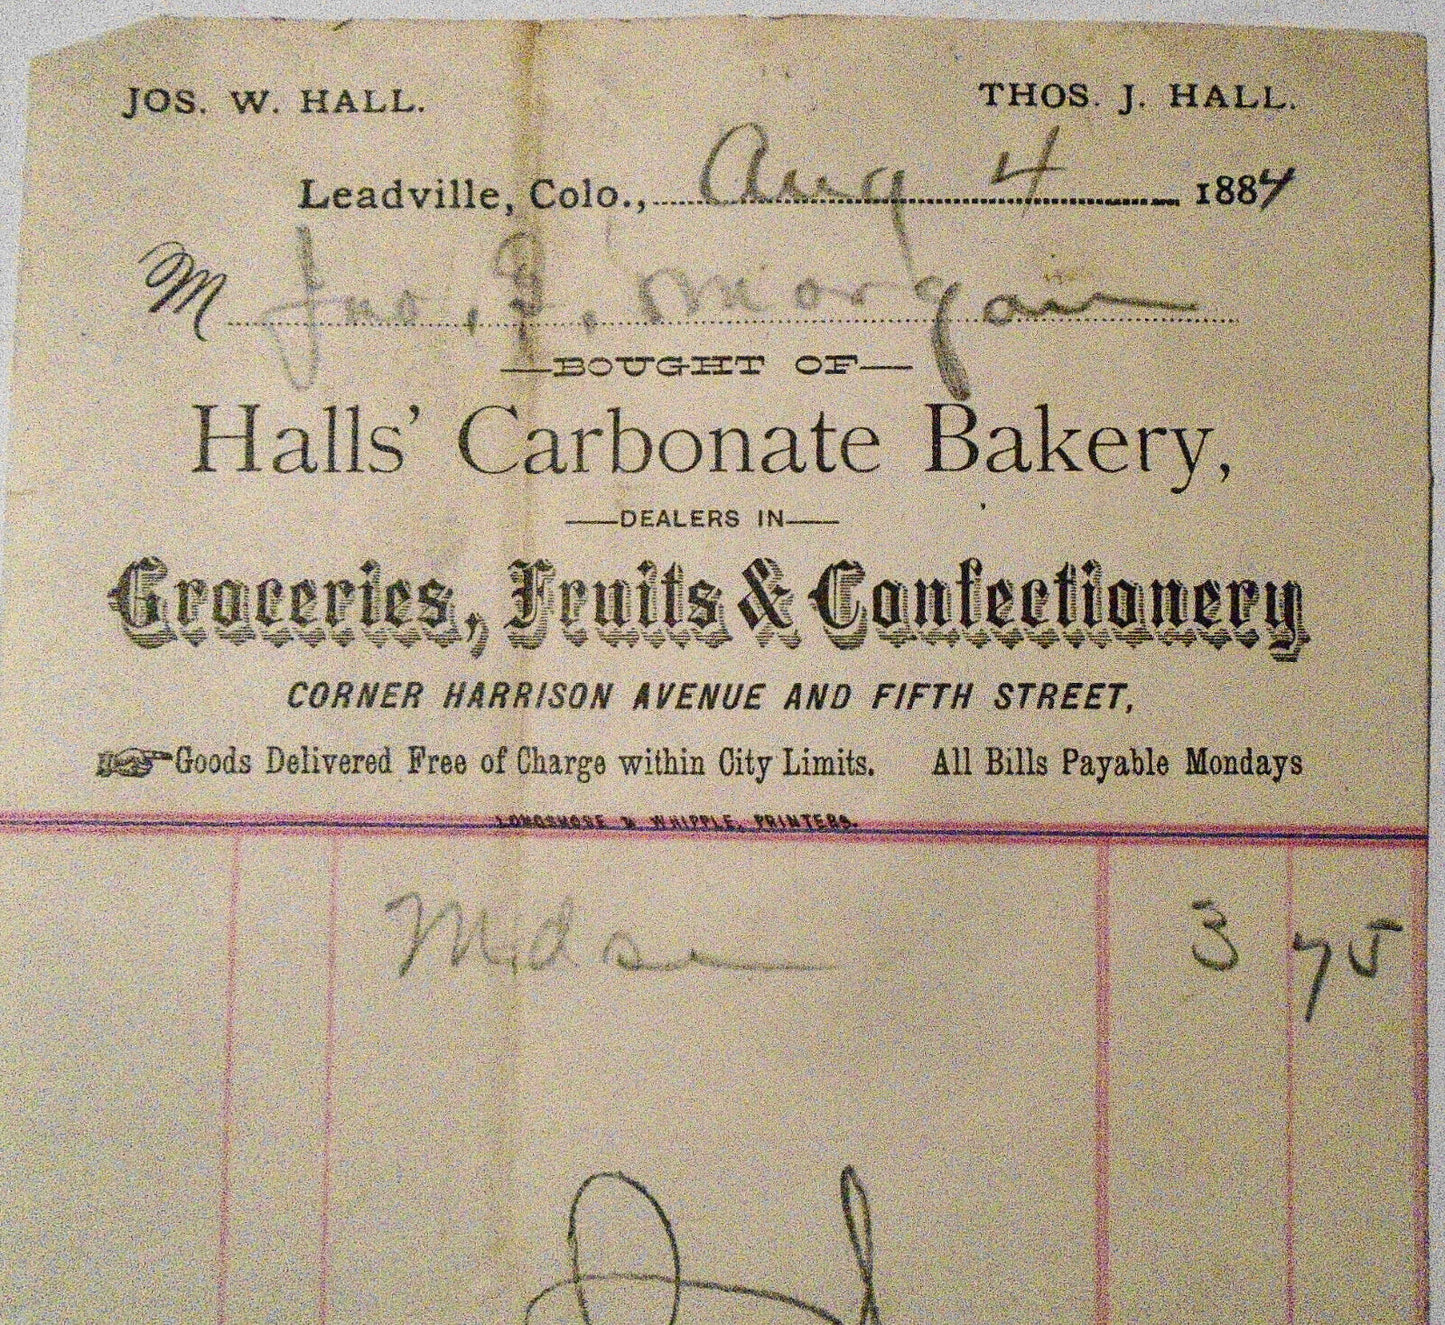 JOS. W. HALL. THOS. J. HALL.
Leadville, Colo., Aug 4 1884
M Jno. J. Morgan
—BOUGHT OF—
Halls' Carbonate Bakery,
—DEALERS IN—
Groceries, Fruits & Confectionery
CORNER HARRISON AVENUE AND FIFTH STREET,
Goods Delivered Free of Charge within City Limits. All Bills Payable Mondays
LONGSHORE & WHIPPLE, PRINTERS.
Mdse 3 75